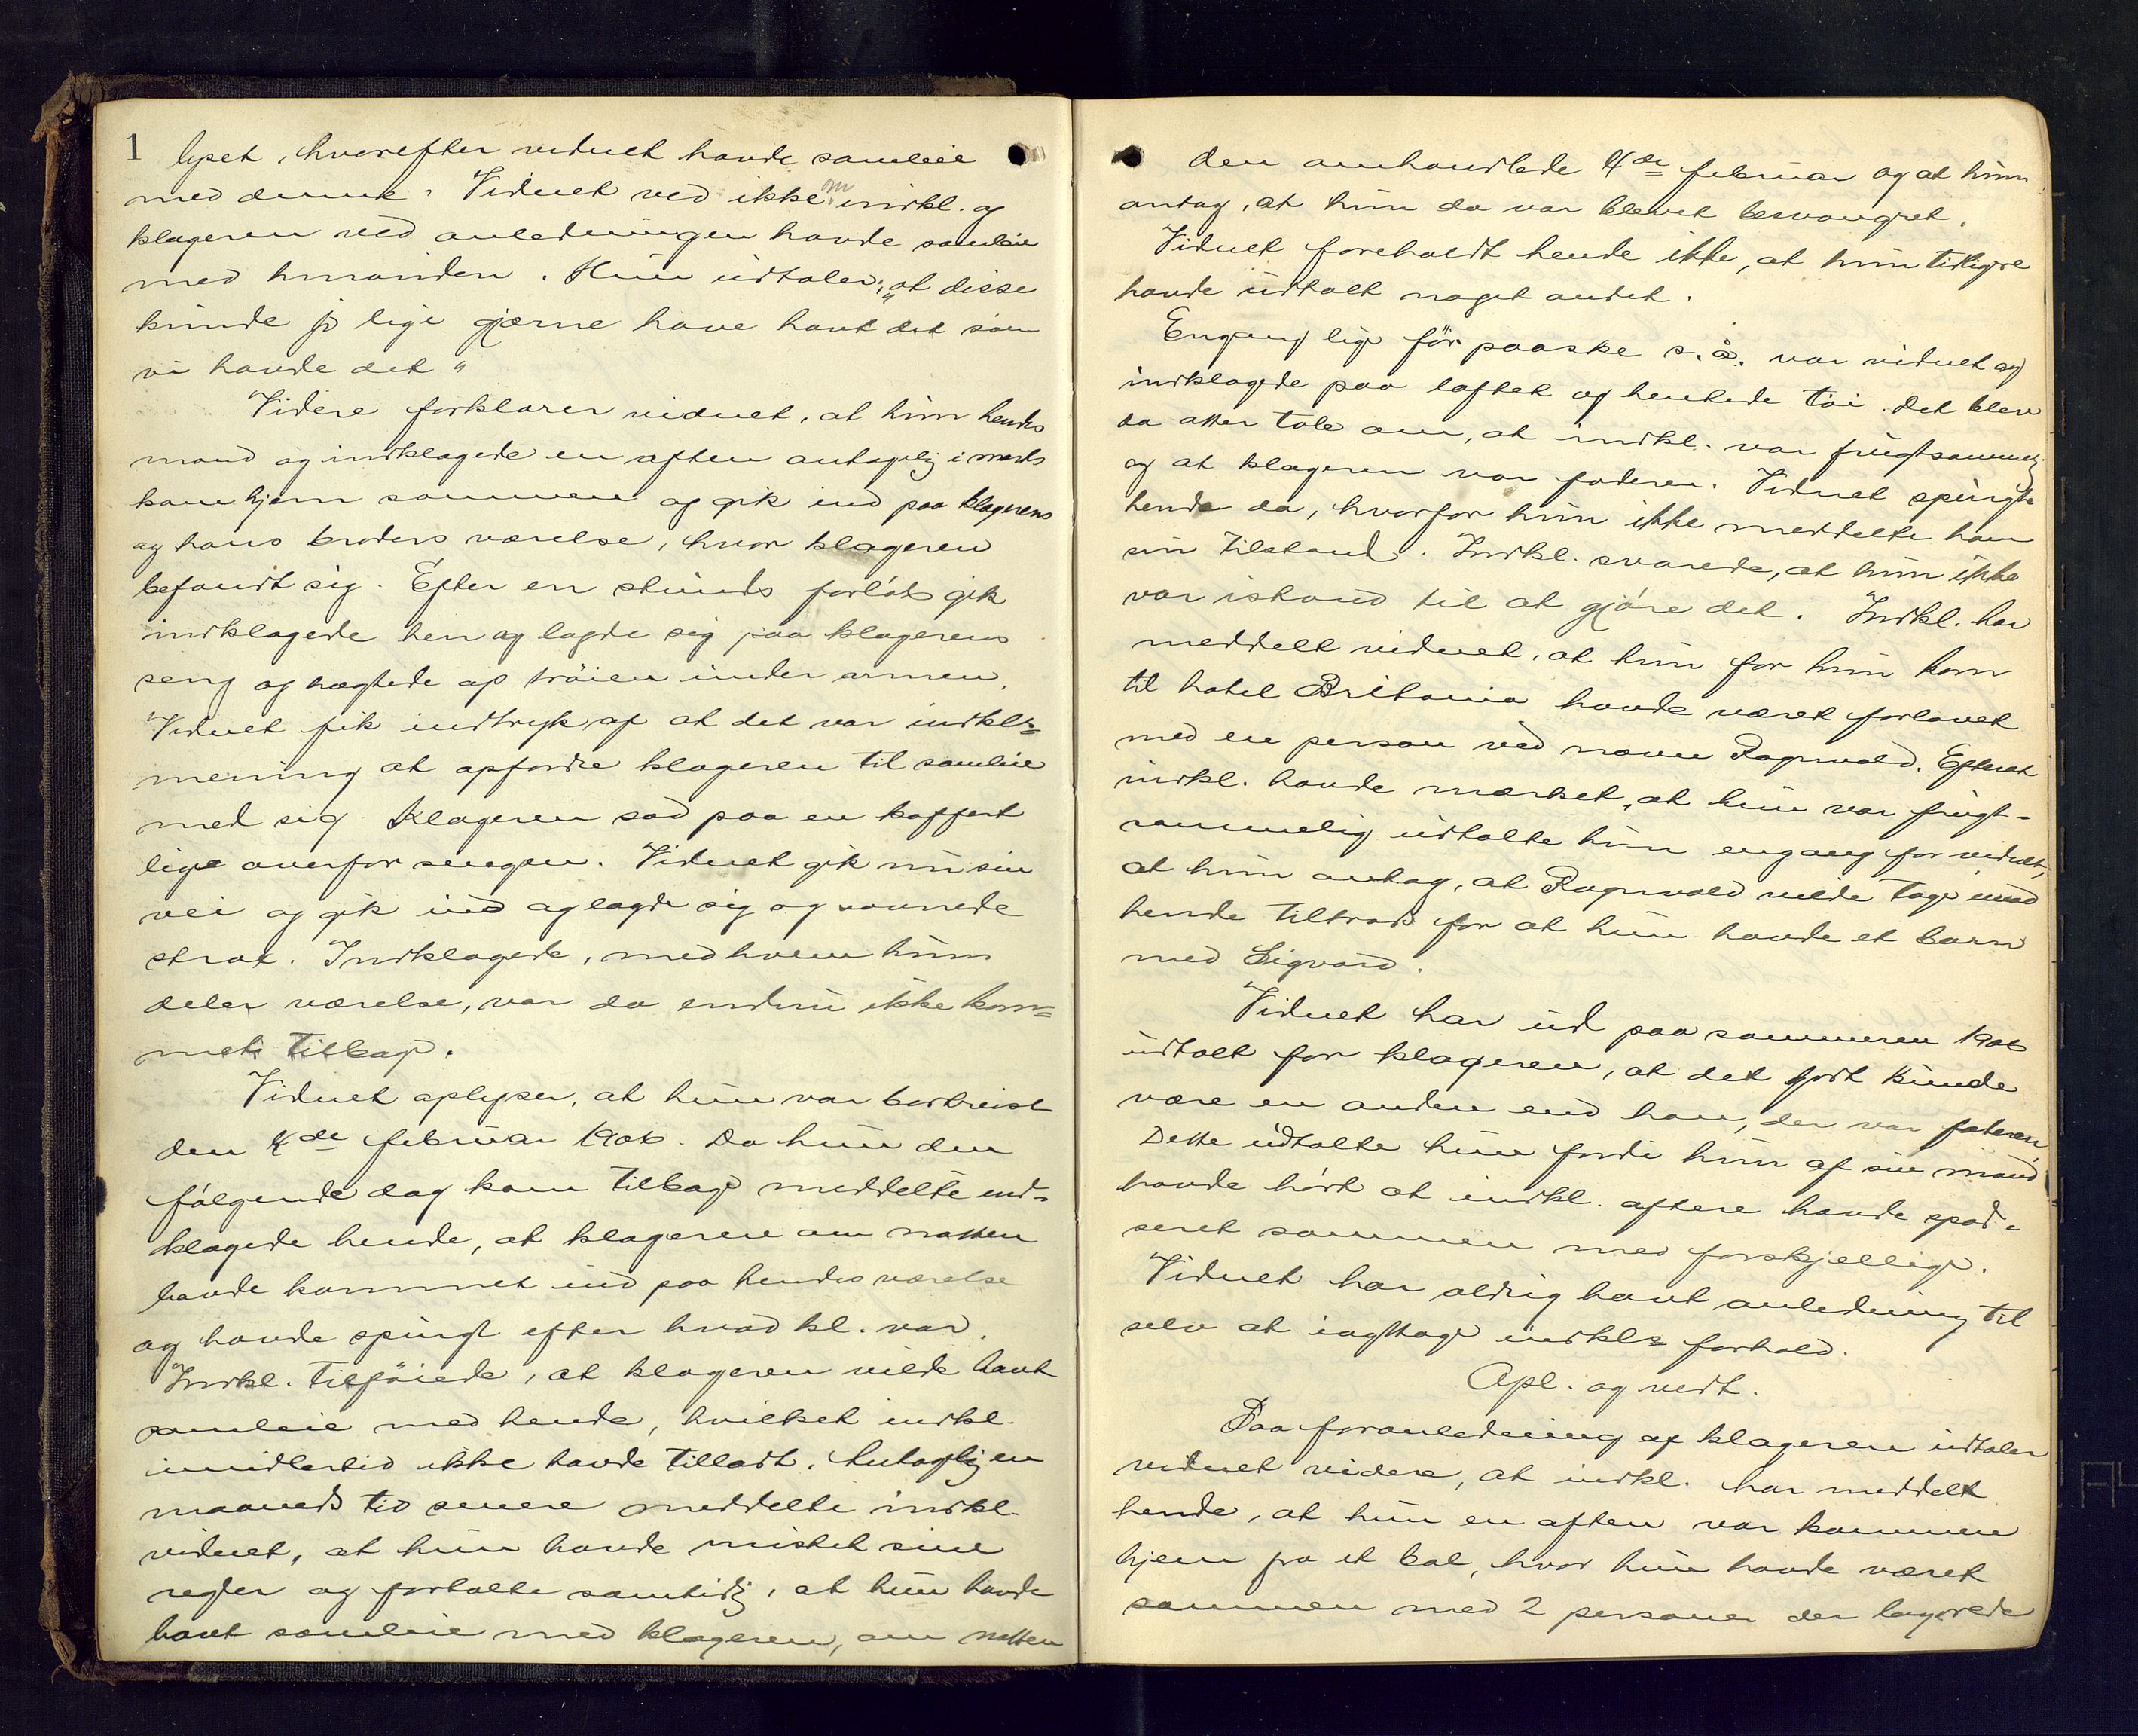 1 lyset, hvorefter vidnet havde samleie
med denne. Vidnet ved ikke om indkl. og
klageren ved anledningen havde samleie
med hinanden. Hun udtaler: "at disse
kunde jo lige gjerne have havt det som
vi havde det"
Videre forklarer vidnet, at hun hendes
mand og indklagede en aften antagelig i marts
kom hjem sammen og gik ind paa klagerens
og hans broders værelse, hvor klageren
befandt sig. Efter en stunds forløb gik
indklagede hen og lagde sig paa klagerens
seng og hægtede op trøien under armen.
Vidnet fik indtryk af at det var indkls=
mening at opfordre klageren til samleie
med sig. Klageren sad paa en koffert
lige overfor sengen. Vidnet gik nu sin
vei og gik ind og lagde sig og sovnede
strax. Indklagede, med hvem hun
deler værelse, var da endnu ikke kom=
met tilbage.
Vidnet oplyser, at hun var bortreist
den 4de februar 1906. Da hun den
følgende dag kom tilbage meddelte ind=
klagede hende, at klageren om natten
havde kommet ind paa hendes værelse
og havde spurgt efter hvad kl. var.
Indkl. tilføiede, at klageren vilde havt
samleie med hende, hvilket indkl.
imidlertid ikke havde tilladt. Antagelig en
maaneds tid senere meddelte indkl.
vidnet, at hun havde mistet sine
regler og fortalte samtidig, at hun havde
havt samleie med klageren, om natten
den omhandlede 4de februar og at hun
antog, at hun da var blevet besvangret.
Vidnet foreholdt hende ikke, at hun tidligere
havde udtalt noget andet.
Engang lige før paaske s. å. var vidnet og
indklagede paa loftet og hentede tøi. Det blev
da atter tale om, at indkl. var frugtsommelig
og at klageren var faderen. Vidnet spurgte
hende da, hvorfor hun ikke meddelte ham
sin tilstand. Indkl. svarede, at hun ikke
var istand til at gjøre det. Indkl. har
meddelt vidnet, at hun før hun kom
til hotel Britania havde været forlovet
med en person ved navn Ragnvald. Efterat
indkl. havde mærket, at hun var frugt-
sommelig udtalte hun engang for vidnet,
at hun antog, at Ragnvald vilde tage imod
hende tiltrods for at hun havde et barn
med Sigvard.
Vidnet har ud paa sommeren 1906
udtalt for klageren, at det godt kunde
være en anden end han, der var faderen
Dette udtalte hun fordi hun af sin mand
havde hørt at indkl. oftere havde spad=
seret sammen med forskjellige.
Vidnet har aldrig havt anledning til
selv at iagttage indkls forhold.
Opl. og vedt.
Paa foranledning af klageren udtaler
vidnet videre, at indkl. har meddelt
hende, at hun en aften var kommen
hjem fra et bal, hvor hun havde været
sammen med 2 personer der lagerede